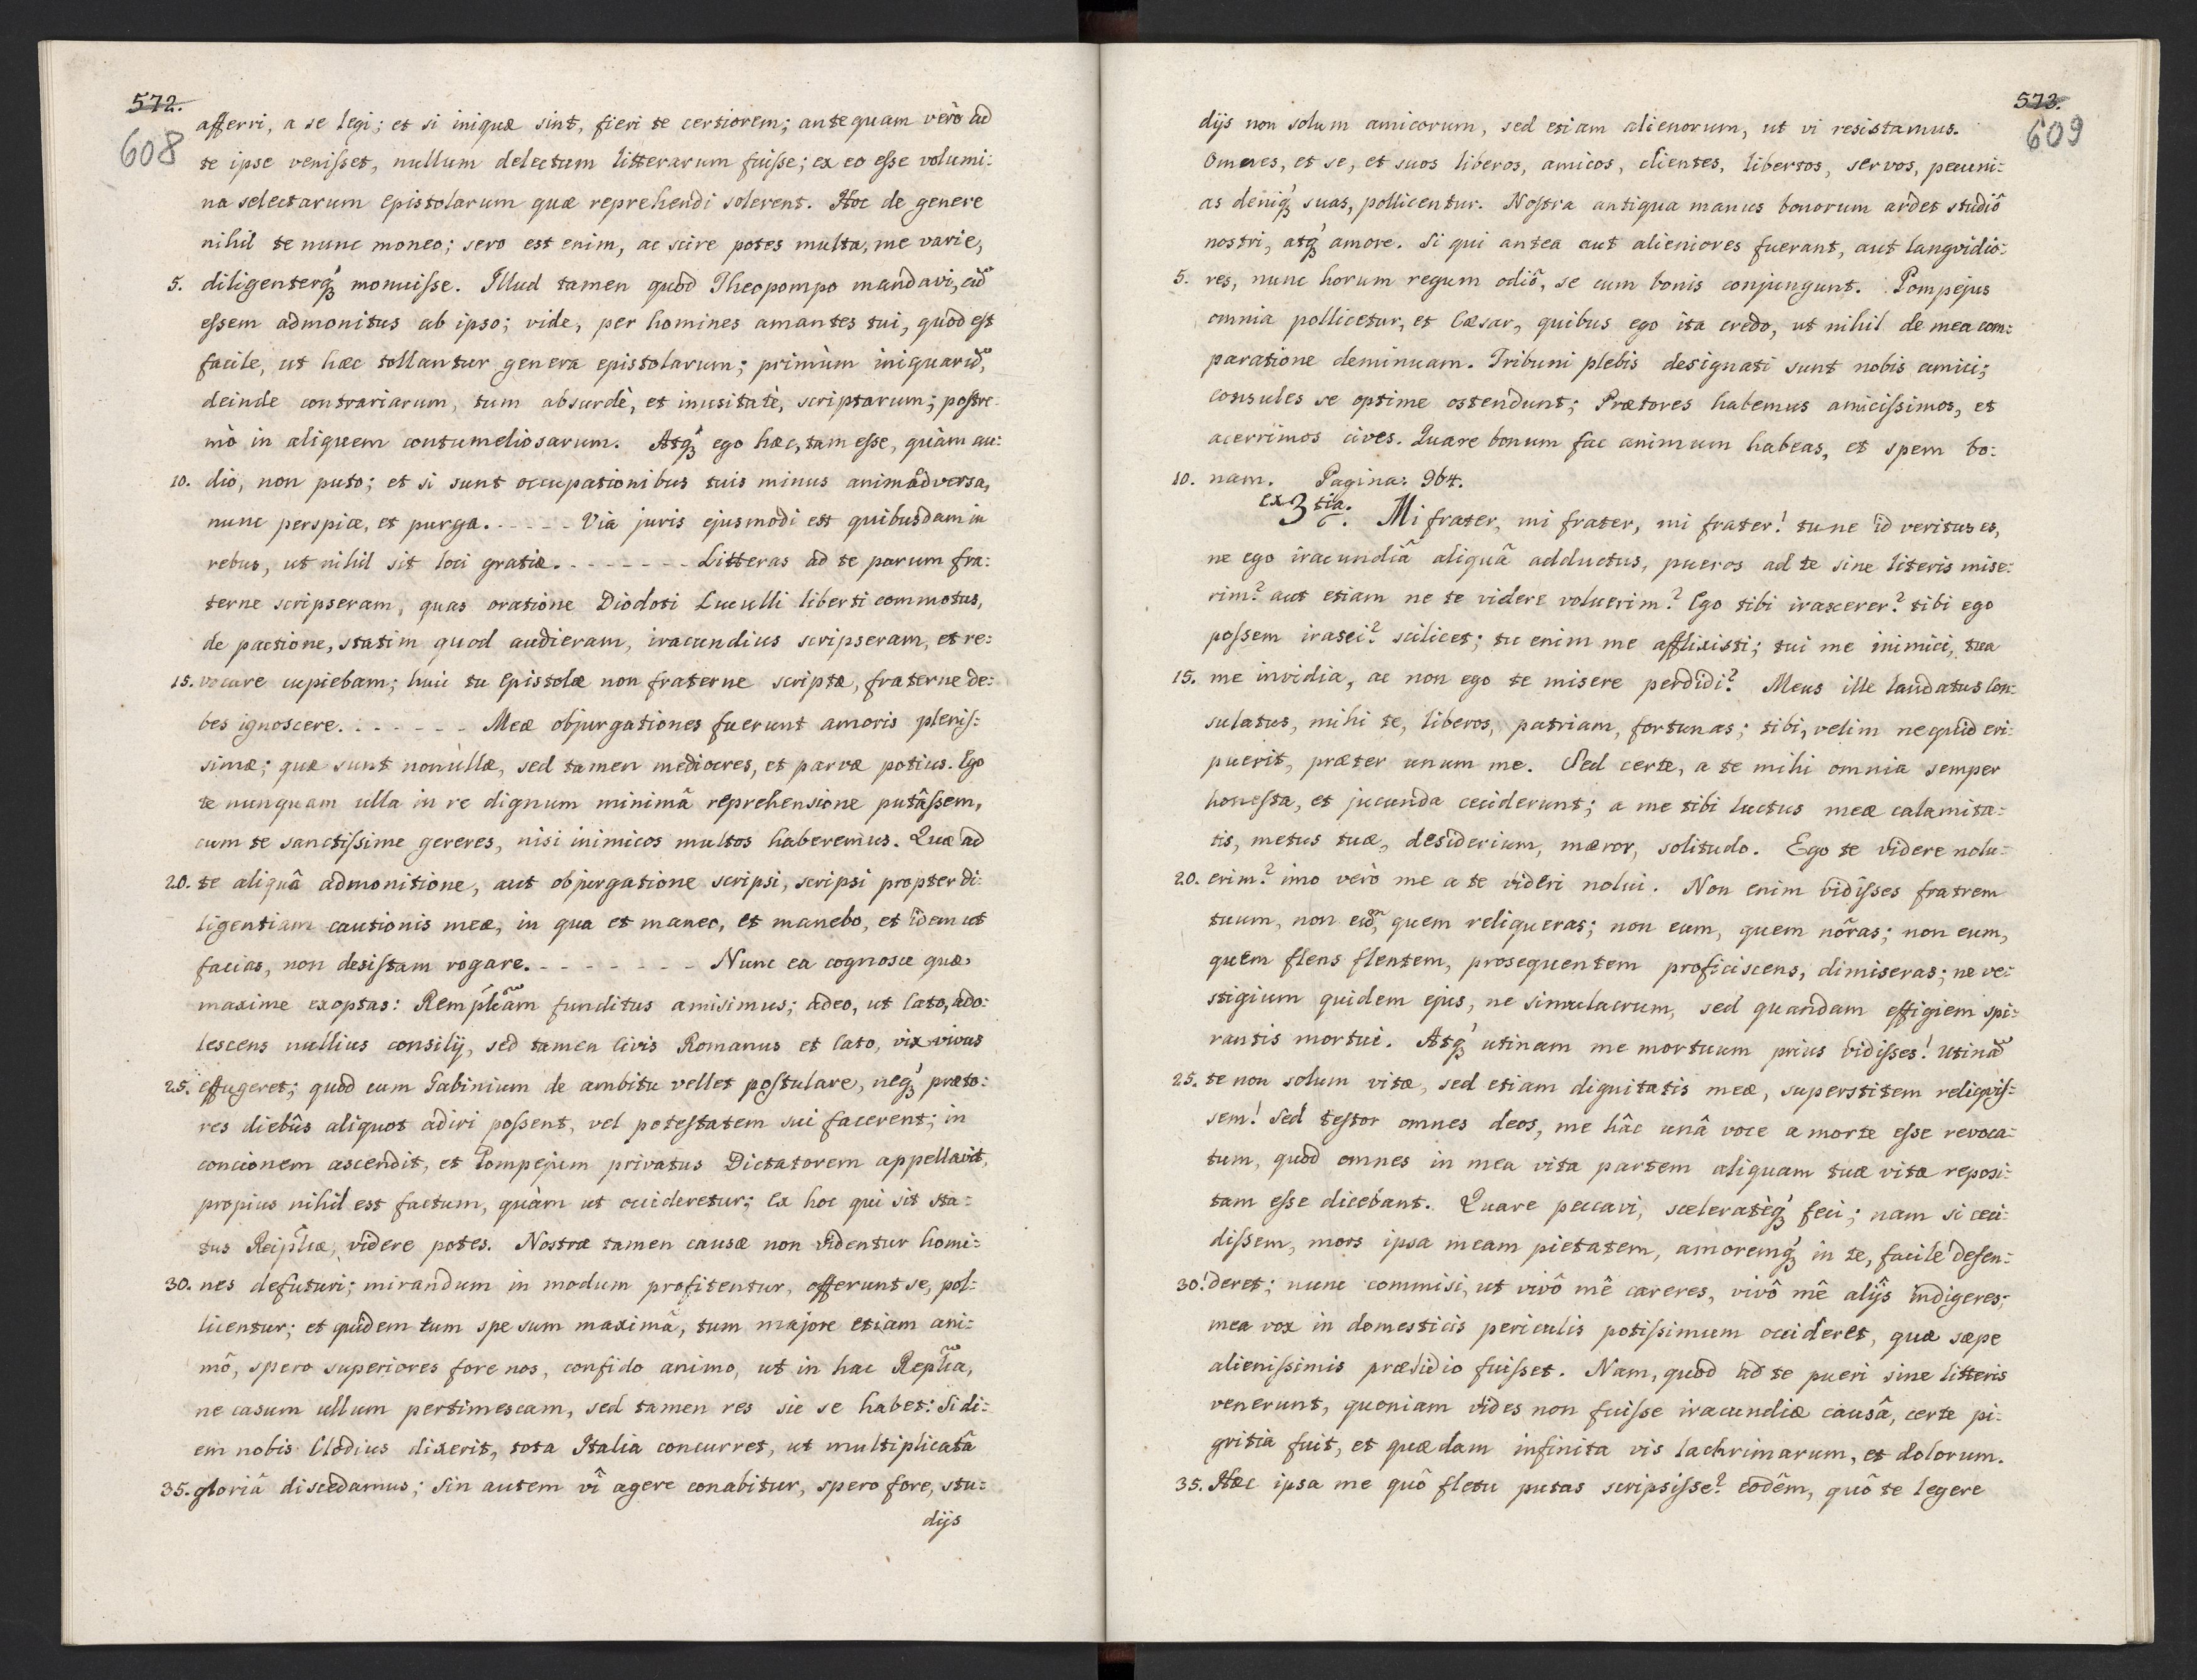 572.
608
afferri, a se legi; et si iniquæ sint, fieri te certiorem; antequam verò ad
te ipse venisset, nullum delectum litterarum fuisse; ex eo esse volumi:
na selectarum epistolarum quæ reprehendi solerent. Hoc de genere
nihil te nunc moneo; sero est enim, ac scire potes multa, me varie,
5. diligenterq́ʒ monuisse. Illud tamen quod Theopompo mandavi, cū
essem admonitus ab ipso; vide, per homines amantes tui, quod est
facile, ut hæc tollantur genera epistolarum; primùm iniquarū,
deinde contrariarum, tum absurdè, et inusitatè, scriptarum; postre:
mò in aliquem contumeliosarum. Atq́ʒ ego hæc, tam esse, quàm au:
10. dio, non puto; et si sunt occupationibus tuis minus animadversa,
nunc perspice, et purga. - - - - - Via juris ejusmodi est quibusdam in
rebus, ut nihil sit loci gratiæ. - - - - - - - - Litteras ad te parum fra:
terne scripseram, quas oratione Diodoti Luculli liberti commotus,
de pactione, statim quod audieram, iracundius scripseram, et re:
15. vocare cupiebam; huic tu Epistolæ non fraterne scriptæ, fraterne de:
bes ignoscere. - - - - - - Meæ objurgationes fuerunt amoris plenis:
simæ; quæ sunt nonùllæ, sed tamen mediocres, et parvæ potius. Ego
te nunquam ulla in re dignum minimâ reprehensione putâssem,
cum te sanctissime gereres, nisi inimicos multos haberemus. Quæ ad
20. te aliquâ admonitione, aut objurgatione scripsi, scripsi propter di:
ligentiam cautionis meæ, in qua et maneo, et manebo, et idem ut
facias, non desistam rogare. - - - - - - - - Nunc ea cognosce quæ
maxime exoptas: Remplicam funditus amisimus; adeo, ut Cato, ado:
lescens nullius consilij, sed tamen Civis Romanus et Cato, vix vivus
25. effugeret; quod cum Gabinium de ambitu vellet postulare, neq́ʒ præto:
res diebûs aliquot adiri possent, vel potestatem sui facerent; in
concionem ascendit, et Pompejum privatus Dictatorem appellavit,
propius nihil est factum, quàm ut occideretur; Ex hoc qui sit sta:
tus Reiplicæ, videre potes. Nostræ tamen causæ non videntur homi:
30. nes defuturi; mirandum in modum profitentur, offerunt se, pol:
licentur; et quidem tum spe sum maximâ, tum majore etiam ani:
mô, spero superiores fore nos, confido animo, ut in hac Replica,
ne casum ullum pertimescam, sed tamen res sic se habet: Si di:
em nobis Clodius dixerit, tota Italia concurret, ut multiplicatâ
35. gloriâ discedamus; Sin autem vî agere conabitur, spero fore, stu:
dijs
573.
609
dijs non solum amicorum, sed etiam alienorum, ut vi resistamus.
Omnes, et se, et suos liberos, amicos, clientes, libertos, servos, pecuni:
as deniq́ʒ suas, pollicentur. Nostra antiqua manus bonorum ardet studiô
nostri, atq́ʒ amore. Si qui antea aut alieniores fuerant, aut langvidio:
5. res, nunc horum regum odiô, se cum bonis conjungunt. Pompejus
omnia pollicetur, et Cæsar, quibus ego ita credo, ut nihil de mea com:
paratione deminuam. Tribuni plebis designati sunt nobis amici;
Consules se optime ostendunt; Prætores habemus amicissimos, et
acerrimos cives. Quare bonum fac animum habeas, et spem bo:
10. nam. Pagina: 964.
Ex 3tia. Mi frater, mi frater, mi frater! tu ne id veritus es,
ne ego iracundiâ aliquâ adductus, pueros ad te sine literis mise:
rim? aut etiam ne te videre voluerim? Ego tibi irascerer? tibi ego
possem irasci? scilicet; tu enim me afflixisti; tui me inimici, tua
15. me invidia, ac non ego te misere perdidi? Meus ille laudatus Con:
sulatus, mihi te, liberos, patriam, fortunas; tibi, velim nequid eri:
puerit, præter unum me. Sed certe, a te mihi omnia semper
honesta, et jucunda ceciderunt; a me tibi luctus meæ calamita:
tis, metus tuæ, desiderium, mæror, solitudo. Ego te videre nolu:
20. erim? imo verò me a te videri nolui. Non enim vidisses fratrem
tuum, non eum, quem reliqueras; non eum, quem nôras; non eum,
quem flens flentem, prosequentem proficiscens, dimiseras; ne ve:
stigium quidem ejus, ne simulacrum, sed quandam effigiem spi:
rantis mortui. Atq́ʒ utinam me mortuum prius vidisses! utinā
25. te non solum vitæ, sed etiam dignitatis meæ, superstitem reliqvis:
sem! Sed testor omnes deos, me hâc unâ voce a morte esse revoca:
tum, quod omnes in mea vita partem aliquam tuæ vitæ reposi:
tam esse dicebant. Quare peccavi, sceleratèq́ʒ feci; nam si ceci:
dissem, mors ipsa meam pietatem, amoremq́ʒ in te, facile defen:
30. deret; nunc commisi, ut vivô mê careres, vivô mê alijs indigeres;
mea vox in domesticis periculis potissimum occideret, quæ sæpe
alienissimis præsidio fuisset. Nam, quod ad te pueri sine litteris
venerunt, quoniam vides non fuisse iracundiæ causâ, certe pi:
gritia fuit, et quædam infinita vis lachrimarum, et dolorum.
35. Hæc ipsa me quô fletu putas scripsisse? eodêm, quô te legere